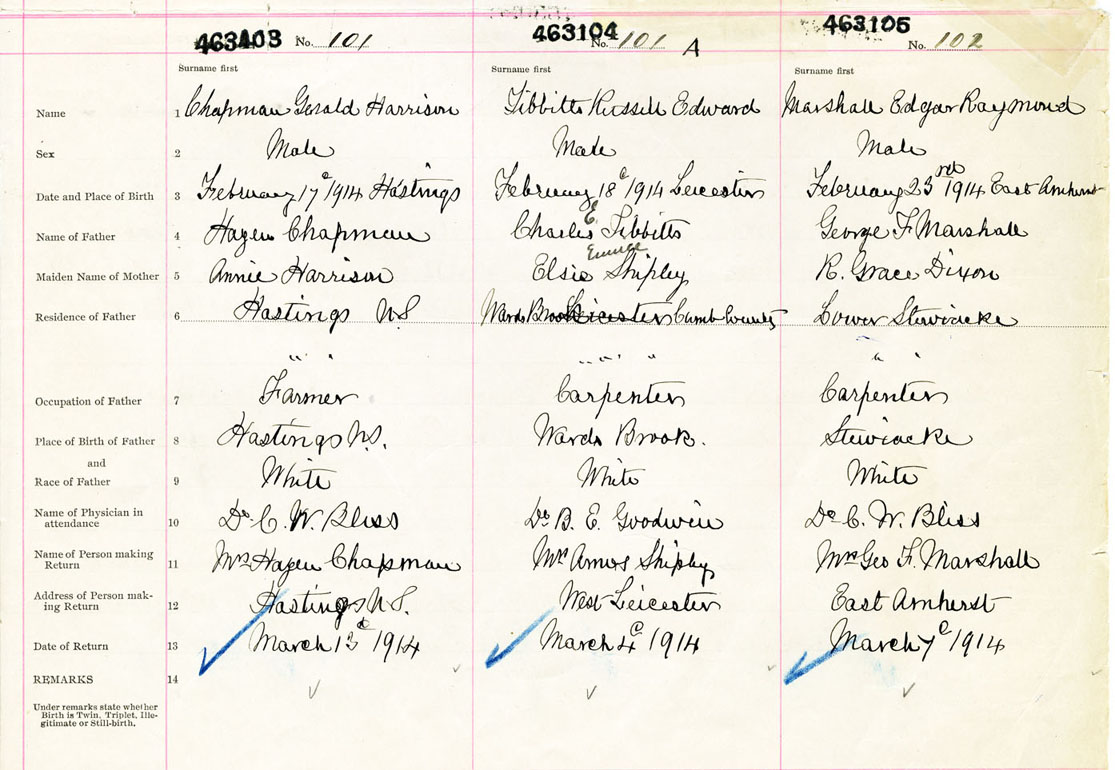 463103 No. 101 463104 No. 101 A 463105 No. 102
Surname first Surname first Surname first
Name 1 Chapman Gerald Harrison Tibbitts Russell Edward Marshall Edgar Raymond
Sex 2 Male Male Male
Date and Place of Birth 3 February 17 1914 Hastings February 18 1914 Leicester February 23rd 1914 East Amherst
Name of Father 4 Hazen Chapman Charles E Tibbitts George F Marshall
Maiden Name of Mother 5 Annie Harrison Elsie Shipley R. Grace Dixon
Residence of Father 6 Hastings N.S Wards Brook Leicester Cumb County Lower Stewiacke
" " " " " " "
Occupation of Father 7 Farmer Carpenter Carpenter
Place of Birth of Father 8 Hastings N.S. Wards Brook. Stewiacke
and
Race of Father 9 White White White
Name of Physician in
attendance 10 Dr C. W. Bliss Dr B. E. Goodwin Dr C. W. Bliss
Name of Person making
Return 11 Mrs Hazen Chapman Mr Amos Shipley Mrs Geo F. Marshall
Address of Person mak-
ing Return 12 Hastings N.S. West Leicester East Amherst
Date of Return 13 March 13 1914 March 4 1914 March 7 1914
REMARKS 14
Under remarks state whether
Birth is Twin, Triplet, Ille-
gitimate or Still-birth.